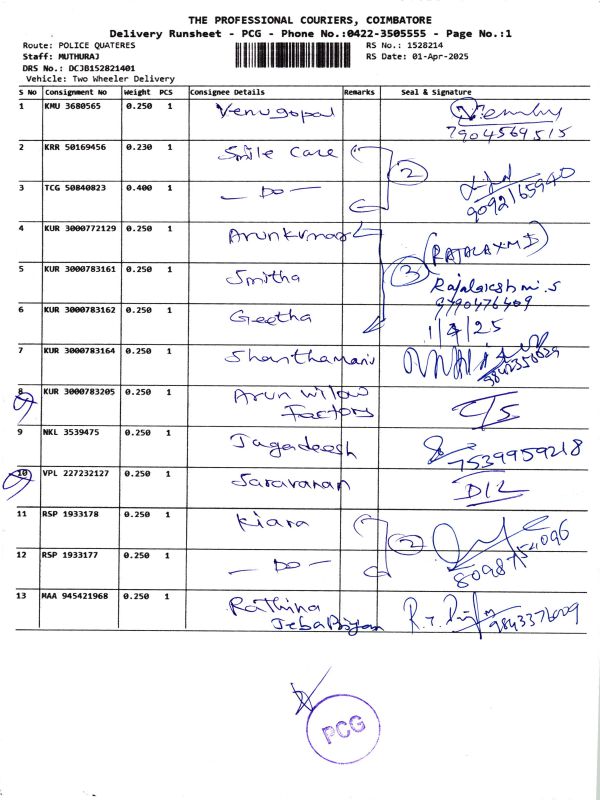 THE PROFESSIONAL COURIERS, COIMBATORE
Delivery Runsheet - PCG - Phone No.:0422-3505555 - Page No.:1
Route: POLICE QUATERES RS No.: 1528214
Staff: MUTHURAJ RS Date: 01-Apr-2025
DRS No.: DCJB152821401
Vehicle: Two Wheeler Delivery
S No Consignment No Weight PCS Consignee Details Remarks Seal & Signature
1 KMU 3680565 0.250 1 Venugopal
7904569515
2 KRR 50169456 0.230 1 Smile Care
2
3 TCG 50840823 0.400 1 - Do -
9092165940
4 KUR 3000772129 0.250 1 Arunkumar
(RAJALAXMI)
5 KUR 3000783161 0.250 1 Smitha 3 Rajalakshmi.S
9790476409
6 KUR 3000783162 0.250 1 Geetha 1/4/25
7 KUR 3000783164 0.250 1 Shanthamani
8 KUR 3000783205 0.250 1 Arun Wilow C/S
Factors
9 NKL 3539475 0.250 1 Jagadeesh
7539959218
10 VPL 227232127 0.250 1 Saravanan D/L
11 RSP 1933178 0.250 1 Kiara
2
12 RSP 1933177 0.250 1 - Do -
13 MAA 945421968 0.250 1 Rathina
9843376009
PCG